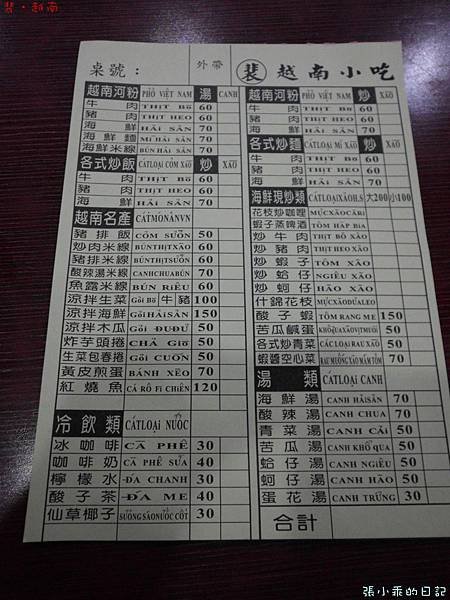 裴·越南
桌號： 外帶
裴 越南小吃
越南河粉 PHỞ VIỆT NAM 湯 CANH
牛肉 THỊT BÒ 60
豬肉 THỊT HEO 60
海鮮 HẢI SẢN 70
海鮮麵 MÌ HẢI SẢN 70
海鮮米線 BÚN HẢI SẢN 70
各式炒飯 CÁTLOẠI CƠM XÀO 炒 XÀO
牛肉 THỊT BÒ 60
豬肉 THỊT HEO 60
海鮮 HẢI SẢN 70
越南名產 CÁTMÓNĂNVN
豬排飯 CƠM SUỜN 50
炒肉米線 BÚNTHỊTXÀO 60
豬排米線 BÚNTHỊTSUỜN 60
酸辣湯米線 CANHCHUABÚN 70
魚露米線 BÚN RIÊU 60
涼拌生菜 GỎI BÒ 牛豬 100
涼拌海鮮 GỎIHẢISẢN 150
涼拌木瓜 GỎI ĐUĐỦ 50
炸芋頭捲 CHẢ GIÒ 50
生菜包春捲 GỎI CUỐN 50
黃皮煎蛋 BÁNH XÈO 70
紅燒魚 CÁ RÔ FI CHIÊN 120
冷飲類 CÁTLOẠI NUỐC
冰咖啡 CÀ PHÊ 30
咖啡奶 CÀ PHÊ SỮA 40
檸檬水 ĐÁ CHANH 30
酸子茶 ĐÁ ME 40
仙草椰子 SUÔNGSÁONUỐC CỐT 30
越南河粉 PHỞ VIỆT NAM 炒 XÀO
牛肉 THỊT BÒ 60
豬肉 THỊT HEO 60
海鮮 HẢI SẢN 70
各式炒麵 CÁTLOẠI MÌ XÀO 炒 XÀO
牛肉 THỊT BÒ 60
豬肉 THỊT HEO 60
海鮮 HẢI SẢN 70
海鮮現炒類 CÁTLOẠIXÀOH.S 大200 小100
花枝炒咖哩 MỰCXÀOCÀRI
蝦子蒸啤酒 TÔM HẤP BIA
炒牛肉 THỊT BÒ XÀO
炒豬肉 THỊT HEO XÀO
炒蝦子 TÔM XÀO
炒蛤仔 NGIÊU XÀO
炒蚵仔 HÀO XÀO
什錦花枝 MỰCXÀODUALEO
酸子蝦 TÔM RANG ME 150
苦瓜鹹蛋 50
各式炒青菜 CÁCLOẠI RAU XÀO 50
蝦醬空心菜 RAU MUỐNG XÀO MẮM TÔM 70
湯類 CÁTLOẠI CANH
海鮮湯 CANH HẢISẢN 70
酸辣湯 CANH CHUA 70
青菜湯 CANH CẢI 50
苦瓜湯 CANH KHỔ QUA 50
蛤仔湯 CANH NGIÊU 50
蚵仔湯 CANH HÀO 50
蛋花湯 CANH TRỨNG 30
合計
張小乖的日記